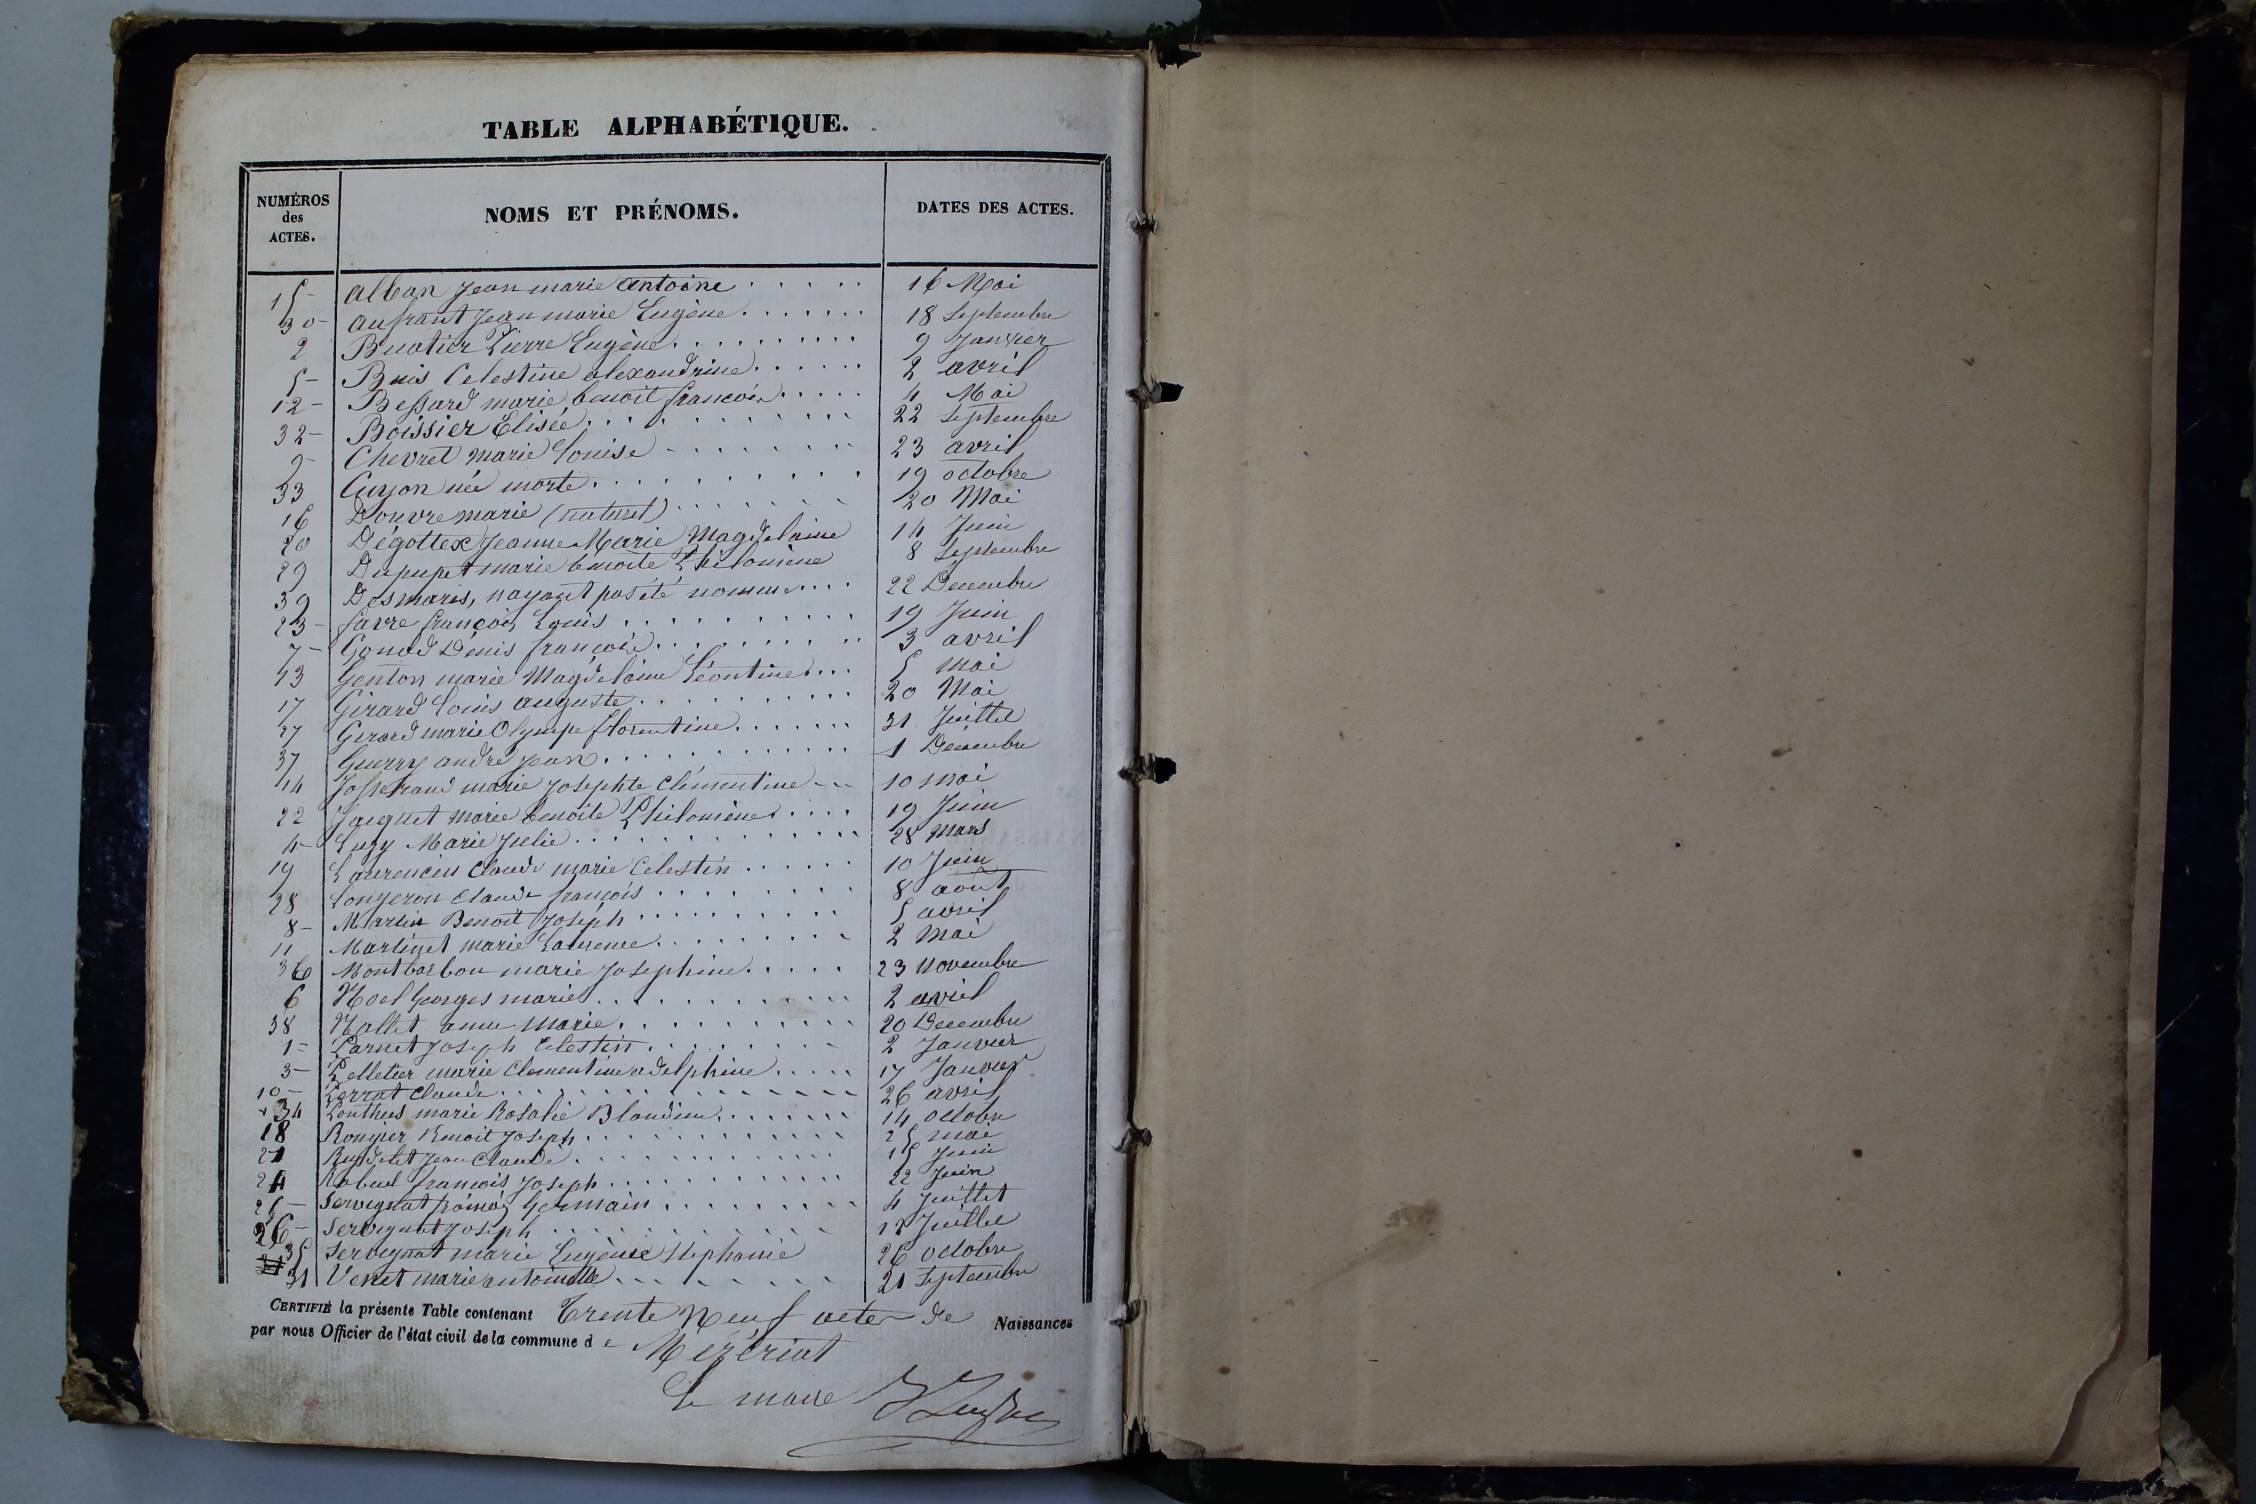 TABLE ALPHABÉTIQUE.
NUMÉROS des ACTES. NOMS ET PRÉNOMS. DATES DES ACTES.
15 Alban Jean marie Antoine 16 Mai
30 Aufrant Jean marie Eugène 18 Septembre
2 Buatier Pierre Eugène 9 Janvier
5 Buis Celestine alexandrine 2 avril
12 Bessard marie benoit francois 4 Mai
32 Boissier Elisée 22 Septembre
9 Chevret Marie Louise 23 avril
33 Guyon née morte 19 octobre
16 Douvre marie (naturel) 20 Mai
20 Dégottex Jeanne Marie Magdelaine 14 Juin
29 Dupupet marie benoite Philomène 8 Septembre
39 Desmares, nayant pas été nomme 22 Decembre
23 favre françois Louis 19 Juin
7 Gonod Dénis françois 3 avril
13 Genton marie Magdelaine Léontine 5 mai
17 Girard Louis auguste 20 Mai
27 Girard marie Olympe florentine 31 Juillet
37 Guerry andré Jean 1 Decembre
14 Josserand marie Josephte Clémentine 10 mai
22 Jacquet Marie benoite Philomène 19 Juin
4 Luzy Marie Julie 28 Mars
19 Laurencin Claude marie Celestin 10 Juin
28 Longeron Claude françois 8 août
8 Martin Benoit Joséph 5 avril
11 Martinet marie Laurence 2 Mai
36 Montbarbon marie Josephine 23 Novembre
6 Noel Georges marie 2 avril
38 Nallet anne Marie 20 Decembre
1 Parnet Joseph Celestin 2 Janvier
3 Pelletier marie Clementine adelphine 17 Janvier
10 Perrat Claude 26 avril
34 Ponthus marie Rosalie Blandine 14 octobre
18 Rongier Benoit Joseph 25 mai
21 Rudelet Jean Claude 15 Juin
24 Rabuel francois Joseph 22 Juin
25 Servignat françois Germain 4 Juillet
26 Servignat Joseph 12 Juillet
35 Servignat marie Eugènie Stephanie 26 octobre
31 Venet marie antoinette 21 Septembre
CERTIFIÉ la présente Table contenant Trente Neuf actes de Naissances
par nous Officier de l'état civil de la commune de Mézériat
Le maire